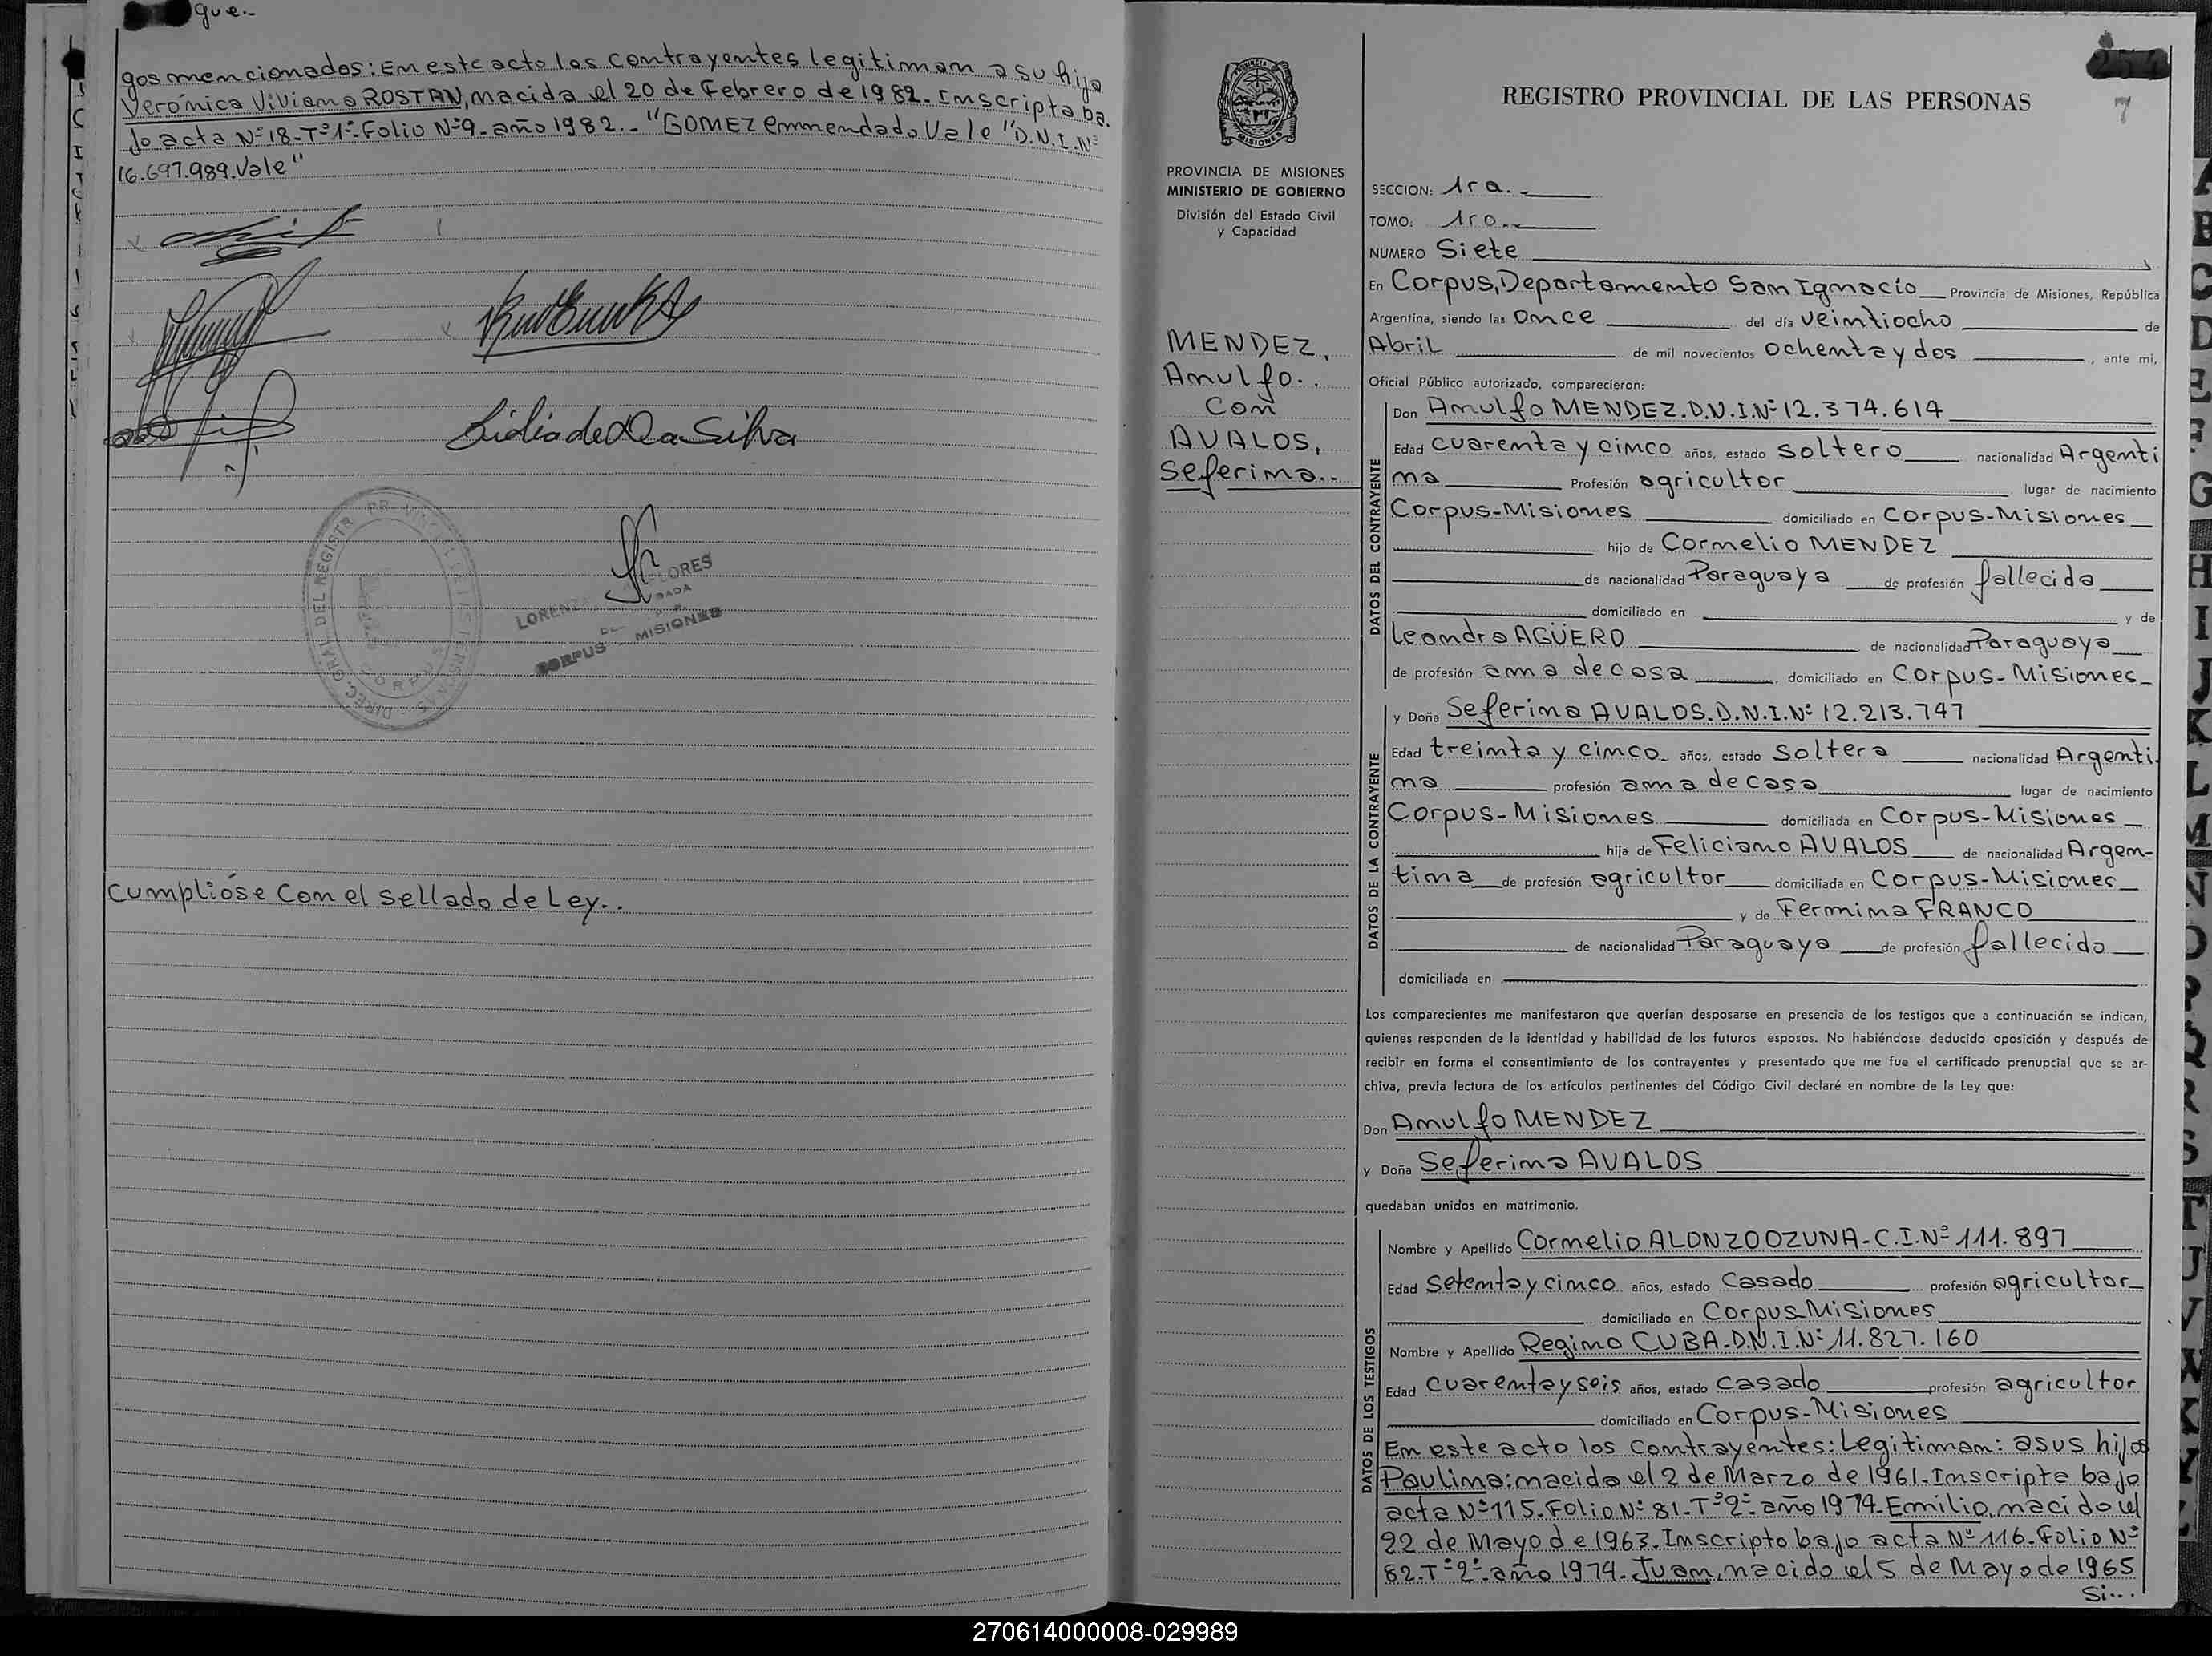 gue.-
gos mencionados: En este acto los contrayentes legitiman a su hija
Verónica Viviana ROSTAN, nacida el 20 de Febrero de 1982. Inscripta ba.
jo acta Nº 18-Tº 1º-Folio Nº 9-año 1982.- "GOMEZ enmendado Vale "D.N.I.Nº
16.697.989. Vale"
Lidia de Da Silva
DIREC. GRAL. DEL REGISTR
CORPUS
LORENZ FLORES
CORPUS MISIONES
Cumplióse con el sellado de Ley..
PROVINCIA DE MISIONES
MINISTERIO DE GOBIERNO
División del Estado Civil
y Capacidad
MENDEZ,
Arnulfo..
con
AVALOS,
Seferina..
REGISTRO PROVINCIAL DE LAS PERSONAS
7
SECCION: 1ra.-
TOMO: 1ro.-
NUMERO Siete
En Corpus, Departamento San Ignacio Provincia de Misiones, República
Argentina, siendo las once del día veintiocho de
Abril de mil novecientos ochenta y dos, ante mi,
Oficial Público autorizado, comparecieron:
DATOS DEL CONTRAYENTE
Don Arnulfo MENDEZ. D.N.I.Nº 12.374.614
Edad cuarenta y cinco años, estado soltero nacionalidad Argenti
na Profesión agricultor lugar de nacimiento
Corpus-Misiones domiciliado en Corpus-Misiones
hijo de Cornelio MENDEZ
de nacionalidad Paraguaya de profesión fallecido
domiciliado en y de
Leandra AGÜERO de nacionalidad Paraguaya
de profesión ama de casa, domiciliado en Corpus-Misiones
DATOS DE LA CONTRAYENTE
y Doña Seferina AVALOS. D.N.I.Nº 12.213.747
Edad treinta y cinco años, estado soltera nacionalidad Argenti.
na profesión ama de casa lugar de nacimiento
Corpus-Misiones domiciliada en Corpus-Misiones
hija de Feliciano AVALOS de nacionalidad Argen-
tina de profesión agricultor domiciliada en Corpus-Misiones
y de Fermina FRANCO
de nacionalidad Paraguaya de profesión fallecida
domiciliada en
Los comparecientes me manifestaron que querían desposarse en presencia de los testigos que a continuación se indican,
quienes responden de la identidad y habilidad de los futuros esposos. No habiéndose deducido oposición y después de
recibir en forma el consentimiento de los contrayentes y presentado que me fue el certificado prenupcial que se ar-
chiva, previa lectura de los artículos pertinentes del Código Civil declaré en nombre de la Ley que:
Don Arnulfo MENDEZ
y Doña Seferina AVALOS
quedaban unidos en matrimonio.
DATOS DE LOS TESTIGOS
Nombre y Apellido Cornelio ALONZO OZUNA-C.I.Nº 111.897
Edad setenta y cinco años, estado casado profesión agricultor
domiciliado en Corpus Misiones
Nombre y Apellido Regino CUBA-D.N.I.Nº 11.827.160
Edad cuarenta y seis años, estado casado profesión agricultor
domiciliado en Corpus-Misiones
En este acto los contrayentes: Legitiman: a sus hijos
Paulina: nacida el 2 de Marzo de 1961-Inscripta bajo
acta Nº 115-Folio Nº 81-Tº 2º-año 1974-Emilio, nacido el
22 de Mayo de 1963-Inscripto bajo acta Nº 116-Folio Nº
82-Tº 2º-año 1974-Juan, nacido el 5 de Mayo de 1965
Si...
270614000008-029989